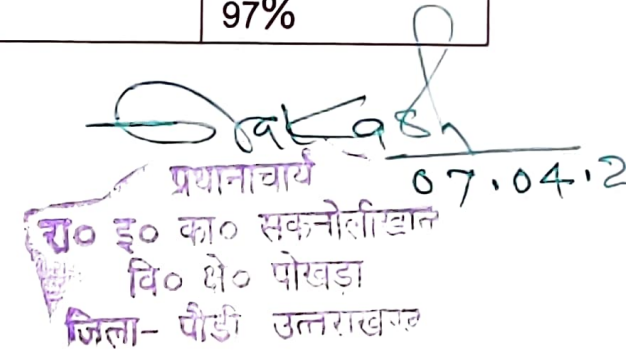 97%
Prakash
प्रधानाचार्य 07.04.2
रा० इ० का० सकनोलीखाल
वि० क्षे० पोखड़ा
जिला- पौडी उत्तराखण्ड